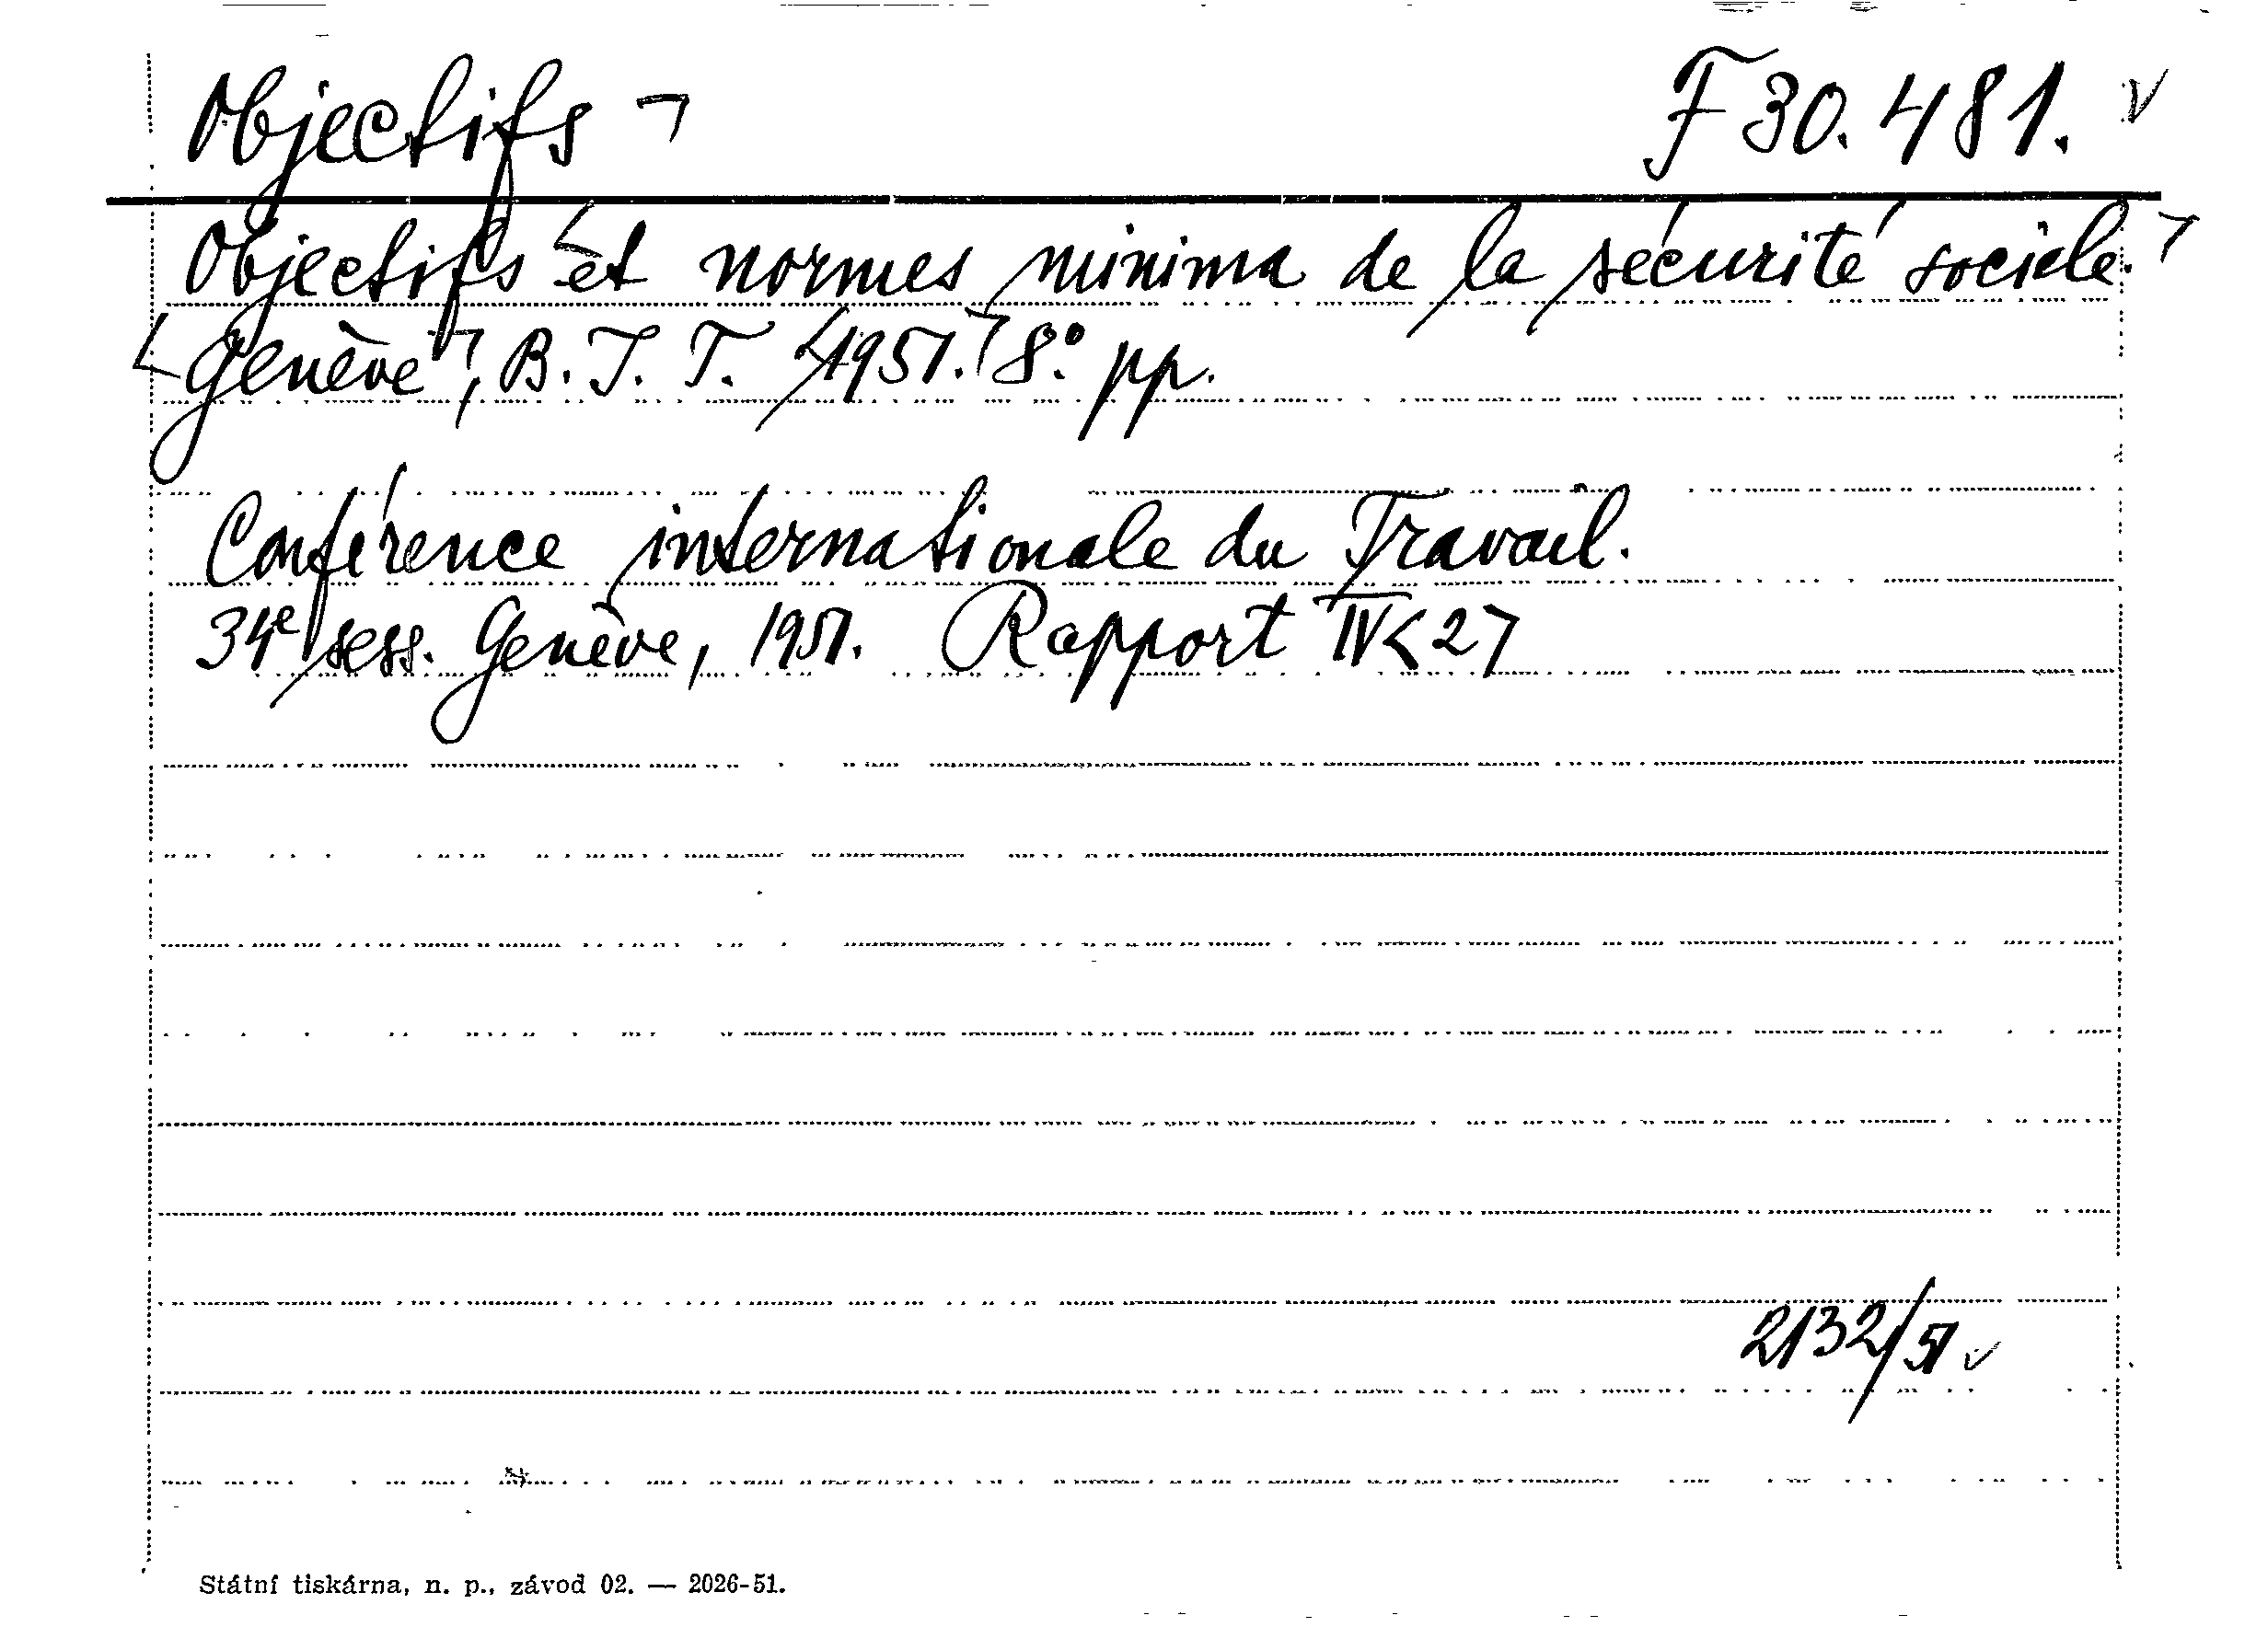 Objectifs ¬ F 30.481. v
Objectifs et normes minima de la sécurité sociale.
Genève, B.I.T. 1951. 8° pp.
Conférence internationale du Travail.
34e sess. Genève, 1951. Rapport IV<2>
2132/51 v
Státní tiskárna, n. p., závod 02. — 2026-51.